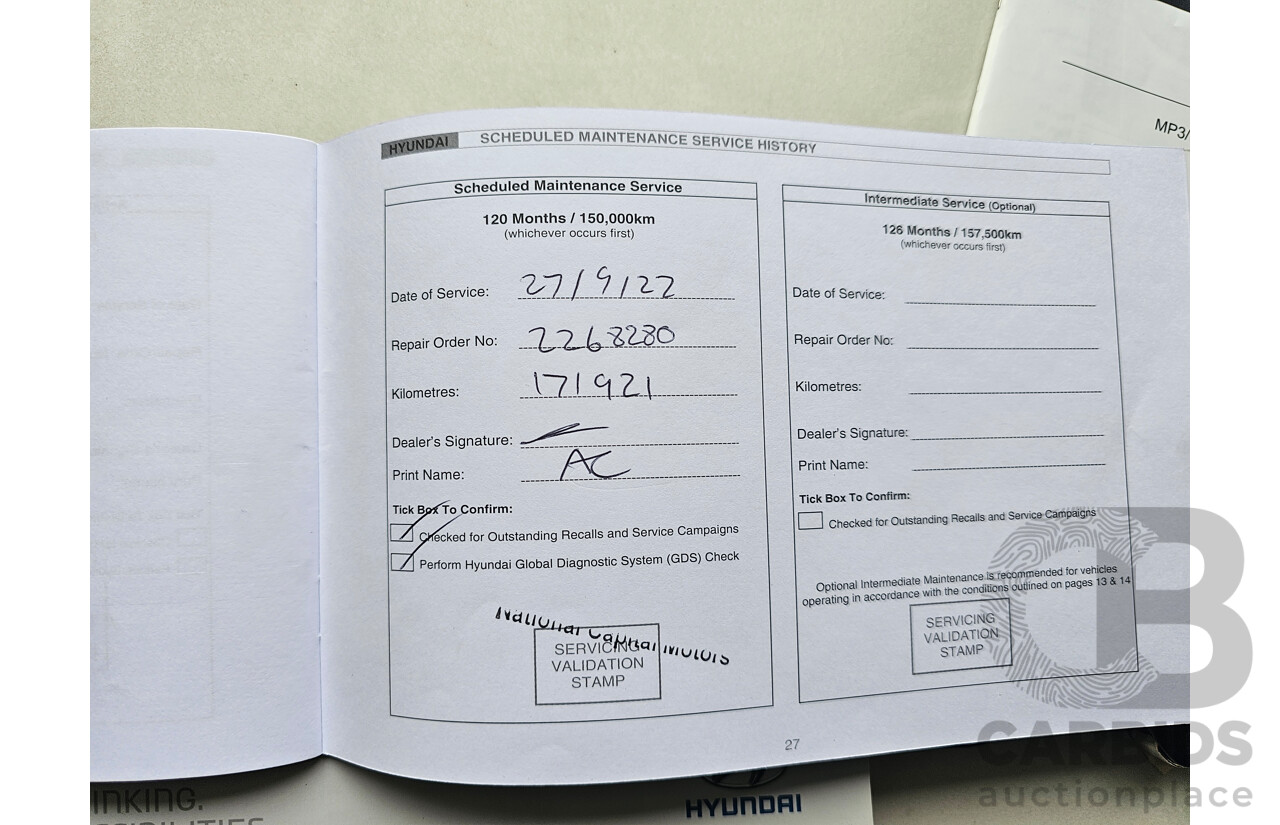 MP3/
HYUNDAI SCHEDULED MAINTENANCE SERVICE HISTORY
Scheduled Maintenance Service
120 Months / 150,000km
(whichever occurs first)
Date of Service: 27/9/22
Repair Order No: 2268280
Kilometres: 171921
Dealer's Signature:
Print Name: AC
Tick Box To Confirm:
Checked for Outstanding Recalls and Service Campaigns
Perform Hyundai Global Diagnostic System (GDS) Check
National Capital Motors
SERVICING
VALIDATION
STAMP
Intermediate Service (Optional)
126 Months / 157,500km
(whichever occurs first)
Date of Service:
Repair Order No:
Kilometres:
Dealer's Signature:
Print Name:
Tick Box To Confirm:
Checked for Outstanding Recalls and Service Campaigns
Optional Intermediate Maintenance is recommended for vehicles
operating in accordance with the conditions outlined on pages 13 & 14
SERVICING
VALIDATION
STAMP
27
INKING.
HYUNDAI
CB
CARBIDS
auctionplace